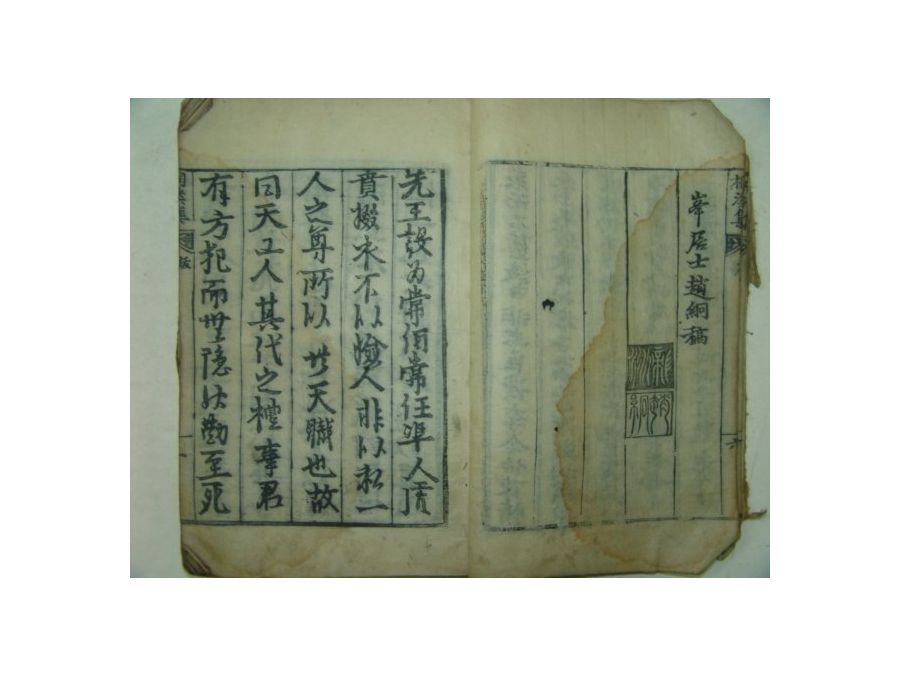 峯居士趙絅稿
先王設為常伯常任準人虎
賁綴衣不以憸人非以私一
人之尊所以共天職也故
曰天工人其代之禮事君
有方犯而無隱服勤至死